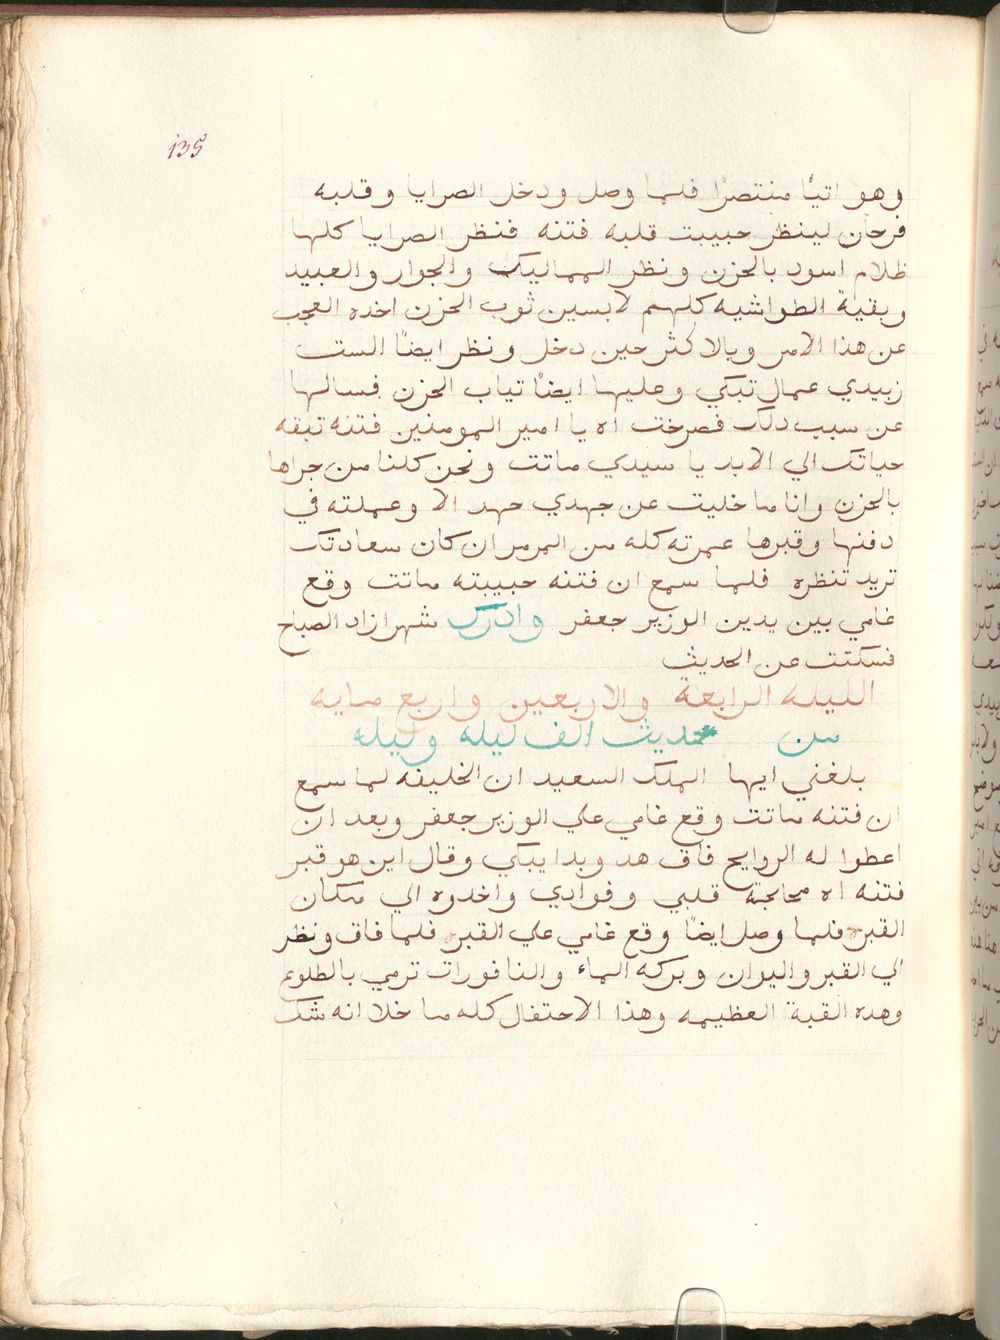 135
وهو اتيًا منتصرًا فلما وصل ودخل الصرايا وقلبه
فرحان لينظر حبيبت قلبه فتنه فنظر الصرايا كلها
ظلام اسود بالحزن ونظر المماليك والجوار والعبيد
وبقية الطواشيه كلهم لابسين ثوب الحزن اخده العجب
عن هذا الامر وبالاكثر حين دخل ونظر ايضًا الست
زبيدي عمال تبكي وعليها ايضًا تياب الحزن فسالها
عن سبب دلك فصرخت اه يا امير المومنين فتنه تبقه
حياتك الي الابد يا سيدي ماتت ونحن كلنا من جراها
بالحزن وانا ما خليت عن جهدي جهد الا وعملته في
دفنها وقبرها عمرته كله من المرمر ان كان سعادتك
تريد تنظره فلما سمع ان فتنه حبيبته ماتت وقع
غامي بين يدين الوزير جعفر وادرك شهرازاد الصباح
فسكتت عن الحديث
الليله الرابعة والاربعين واربع مايه
من حديث الف ليله وليله
بلغني ايها الملك السعيد ان الخليفه لما سمع
ان فتنه ماتت وقع غامي علي الوزير جعفر وبعد ان
اعطوا له الروايح فاق هد وبدا يبكي وقال اين هو قبر
فتنه اه قلبي وفوادي واخدوه الي مكان
القبر فلما وصل ايضًا وقع غامي علي القبر فلما فاق ونظر
الي القبر واليوان وبركه الماء والنافورات ترمي بالطلوع
وهده القبة العظيمه وهذا الاحتفال كله ما خلا انه شك